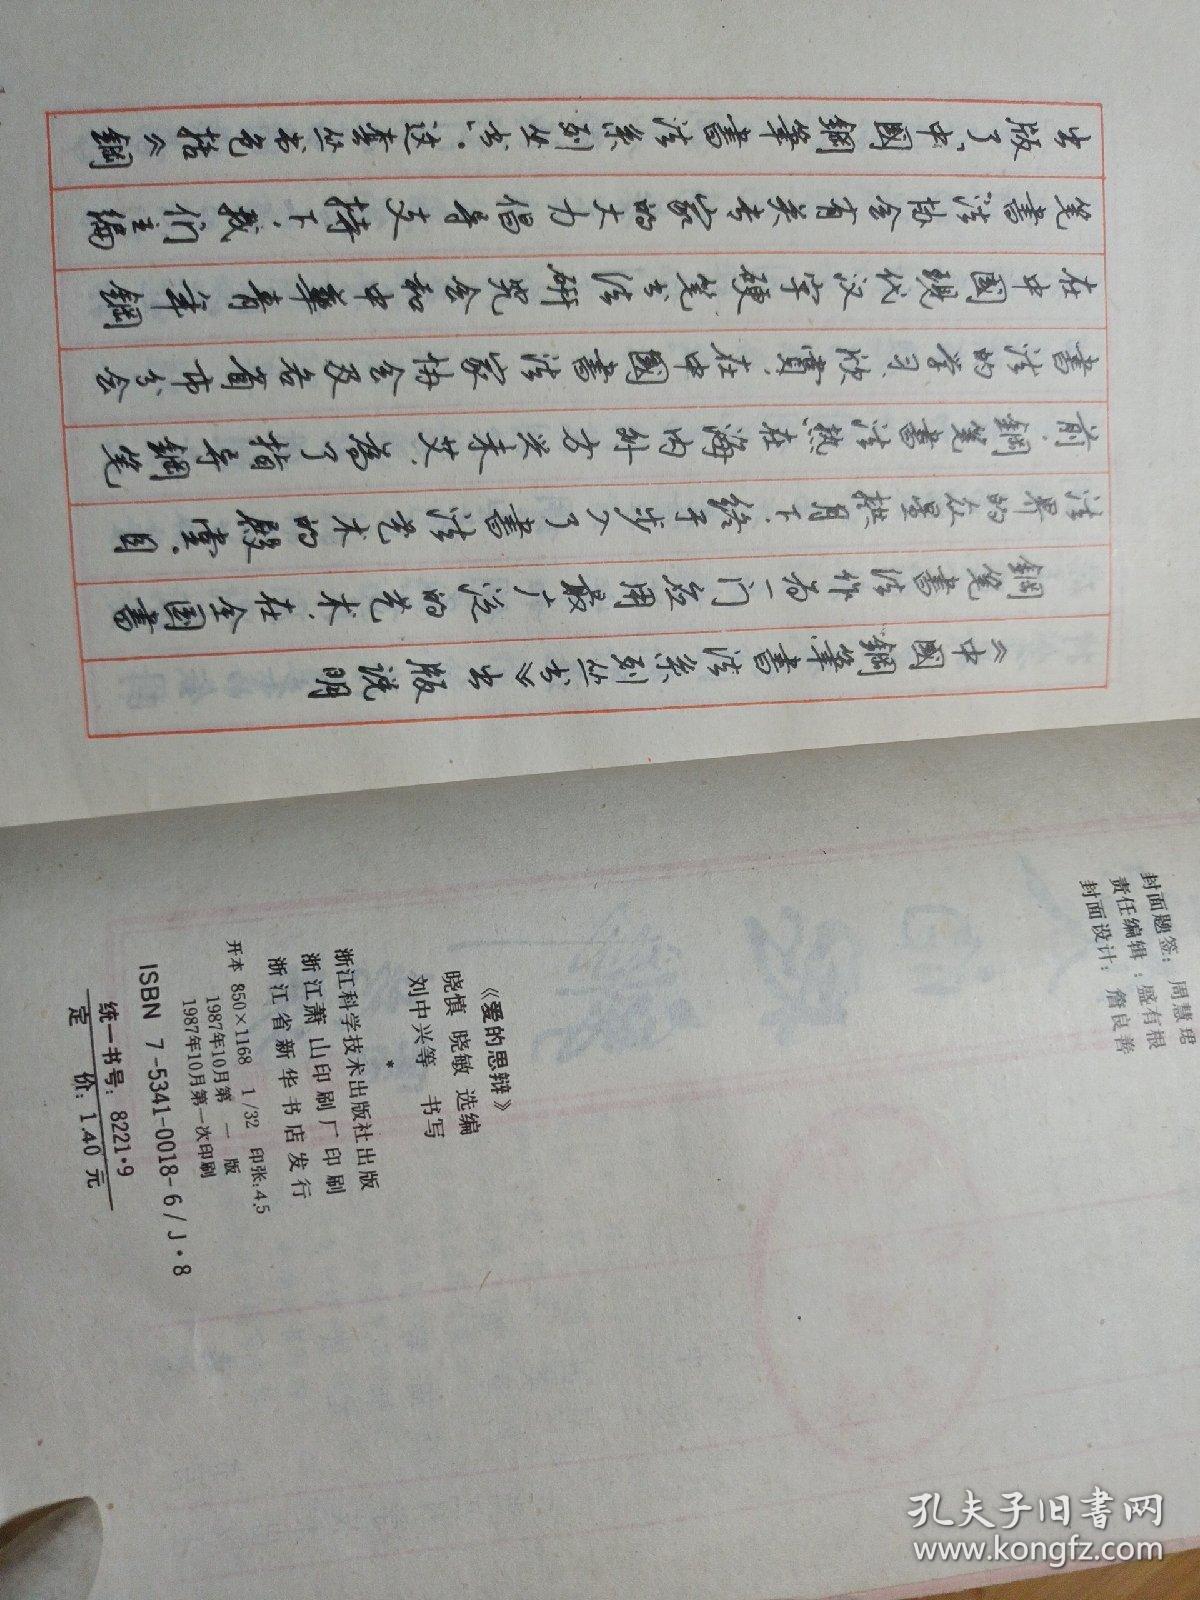 封面题签：周慧珺
责任编辑：盛有根
封面设计：詹良善
《爱的思辩》
晓慎 晓敏 选编
刘中兴等 书写
*
浙江科学技术出版社出版
浙江萧山印刷厂印刷
浙江省新华书店发行
开本 850×1168 1/32 印张:4.5
1987年10月第一版
1987年10月第一次印刷
ISBN 7-5341-0018-6/J·8
统一书号：8221·9
定 价：1.40 元
《中國鋼筆書法系列丛书》出版说明
鋼笔書法作为一门应用最广泛的艺术，在全国書
法界的众星拱月下，终于步入了書法艺术的殿堂。目
前，鋼笔書法热在海内外方兴未艾。为了指导鋼笔
書法的学习、欣賞，在中國書法家协会及各省市分会
在中國现代汉字硬笔书法研究会和中華青年鋼
笔書法协会有关专家的大力倡导支持下，我们主编
出版了“中國鋼筆書法系列丛书”。这套丛书包括《鋼
孔夫子旧书网
www.kongfz.com